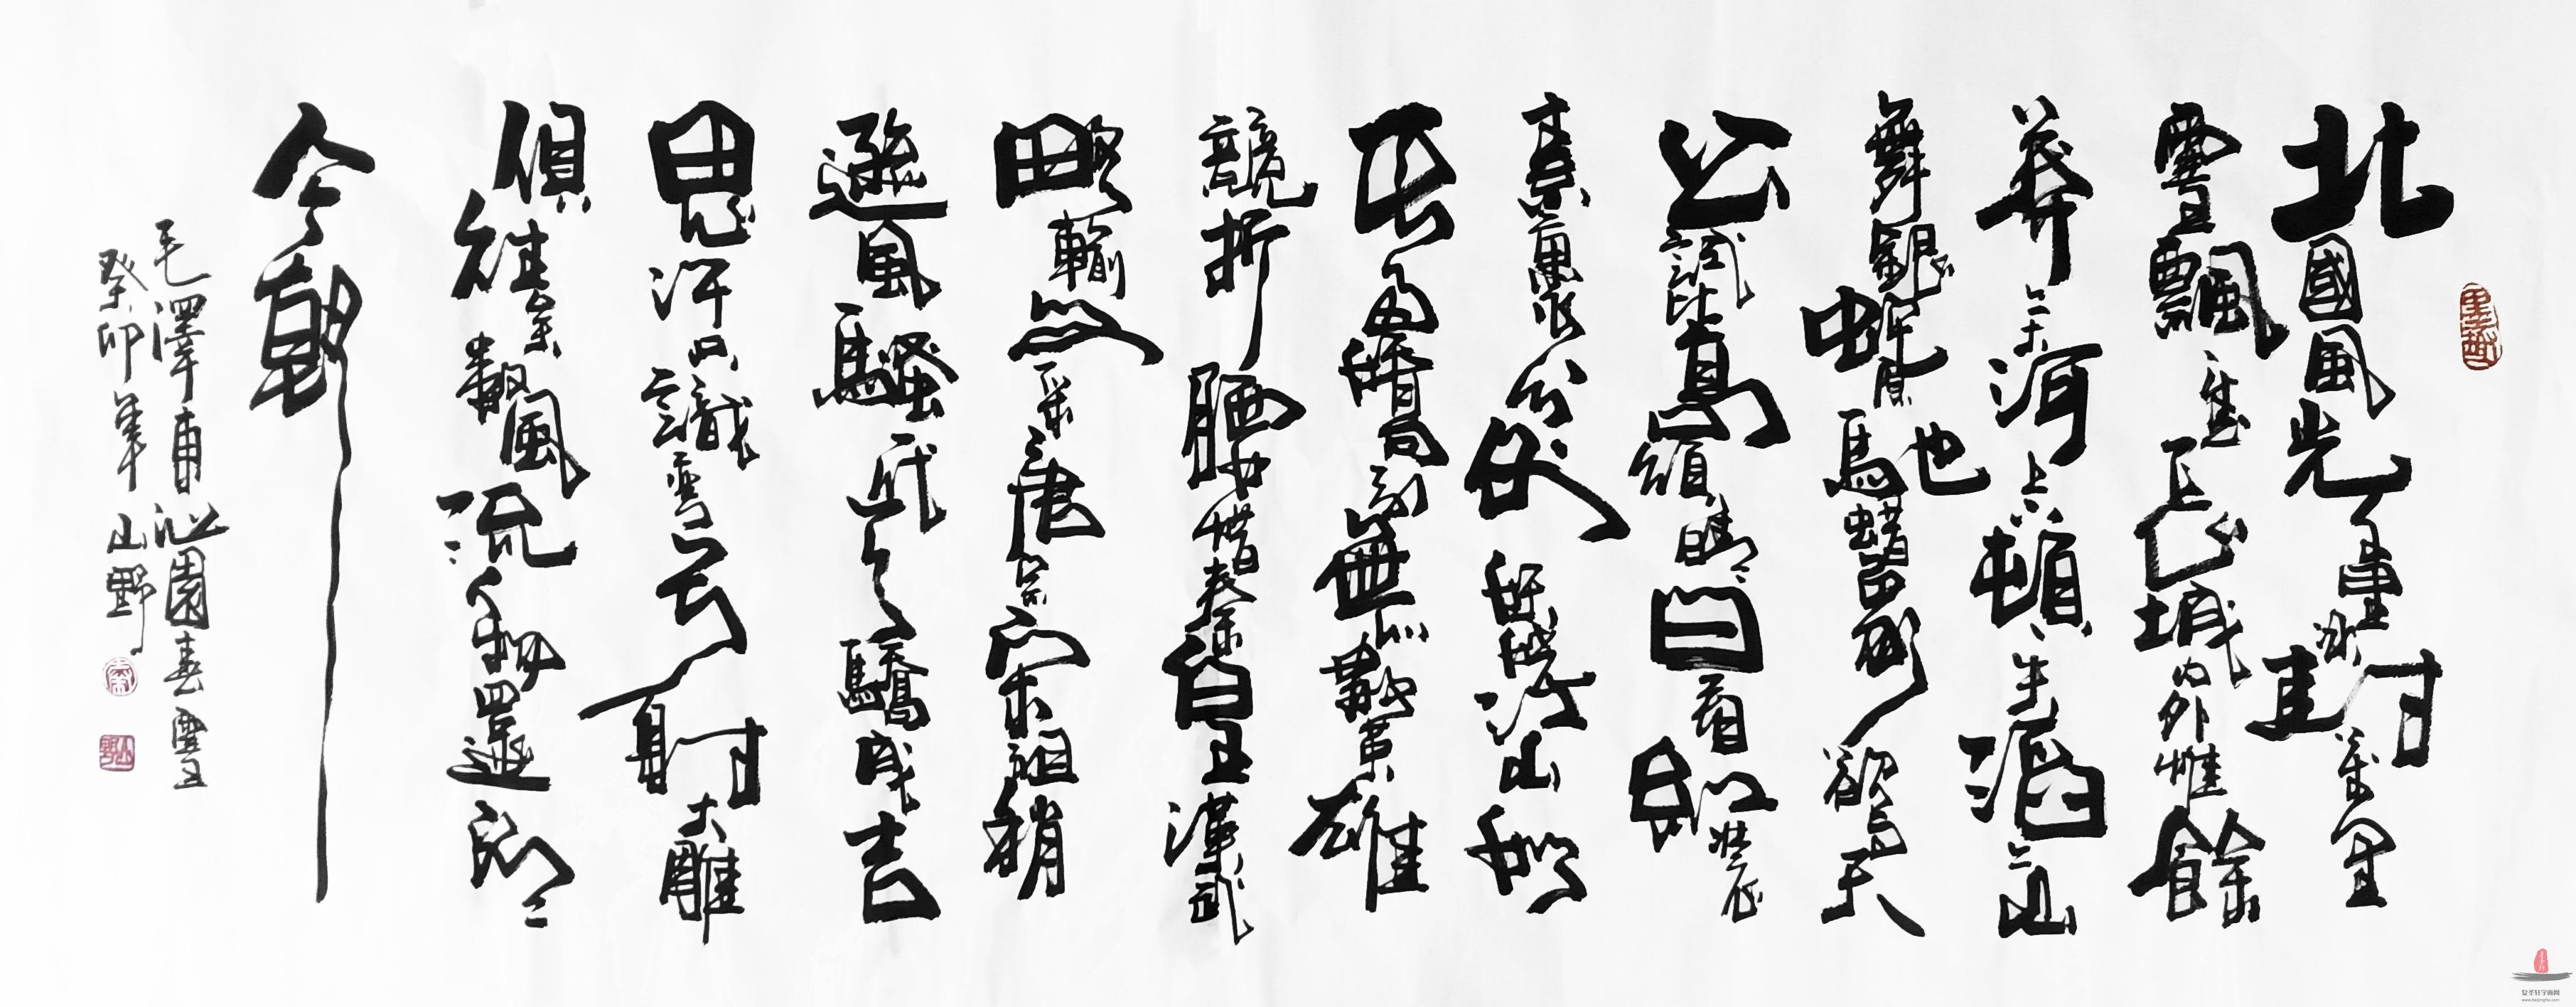 北國風光千里冰封萬里
雪飄望長城內外惟餘
莽〻大河上下頓失滔〻山
舞銀蛇原馳蠟象欲與天
公試比高須晴日看紅裝
素裹分外妖嬈江山如
此多嬌引無數英雄
競折腰惜秦皇漢武
略輸文采唐宗宋祖稍
遜風騷一代天驕成吉
思汗只識彎弓射大雕
俱往矣數風流人物還看
今朝
毛澤東沁園春雪
癸卯年山野